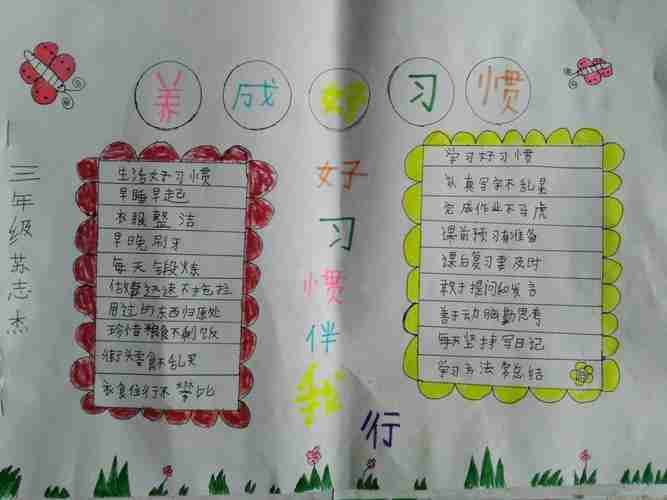 养成好习惯
三年级苏志杰
生活好习惯
早睡早起
衣服整洁
早晚刷牙
每天锻炼
做事迅速不拖拉
用过的东西归原处
珍惜粮食不剩饭
街头零食不乱买
衣食住行不攀比
好习惯伴我行
学习好习惯
认真写字不乱涂
完成作业不马虎
课前预习有准备
课后复习要及时
敢于提问和发言
善于动脑勤思考
每天坚持写日记
学习方法常总结